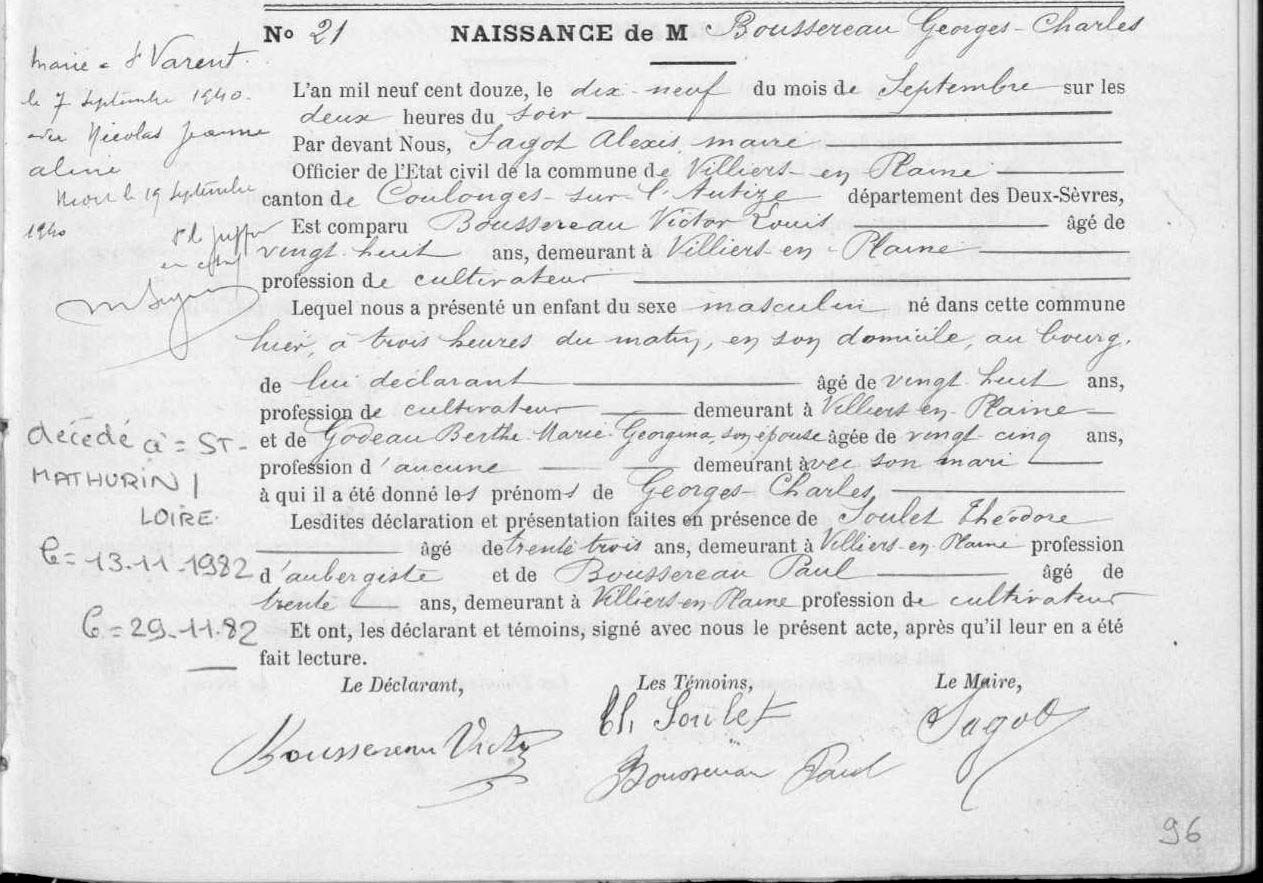 No 21 NAISSANCE de M Boussereau Georges-Charles
L'an mil neuf cent douze, le dix-neuf du mois de Septembre sur les
deux heures du soir
Par devant Nous, Sagot Alexis, maire
Officier de l'Etat civil de la commune de Villiers-en-Plaine
canton de Coulonges-sur-l'Autize département des Deux-Sèvres,
Est comparu Boussereau Victor Louis âgé de
vingt-huit ans, demeurant à Villiers-en-Plaine
profession de cultivateur
Lequel nous a présenté un enfant du sexe masculin né dans cette commune
hier, à trois heures du matin, en son domicile, au bourg,
de lui déclarant âgé de vingt-huit ans,
profession de cultivateur demeurant à Villiers-en-Plaine
et de Godeau Berthe-Marie-Georgina, son épouse âgée de vingt-cinq ans,
profession d'aucune demeurant avec son mari
à qui il a été donné les prénoms de Georges-Charles
Lesdites déclaration et présentation faites en présence de Soulet Théodore
âgé de trente trois ans, demeurant à Villiers-en-Plaine profession
d'aubergiste et de Boussereau Paul âgé de
trente ans, demeurant à Villiers-en-Plaine profession de cultivateur
Et ont, les déclarant et témoins, signé avec nous le présent acte, après qu'il leur en a été
fait lecture.
Le Déclarant, Les Témoins, Le Maire,
Boussereau Victor Th Soulet Sagot
Boussereau Paul
Marié à St Varent
le 7 Septembre 1940
avec Nicolas Jeanne
aline
Niort le 19 Septembre
1940
décédé à = ST-
MATHURIN /
LOIRE.
le = 13.11.1982
le = 29.11.82
96